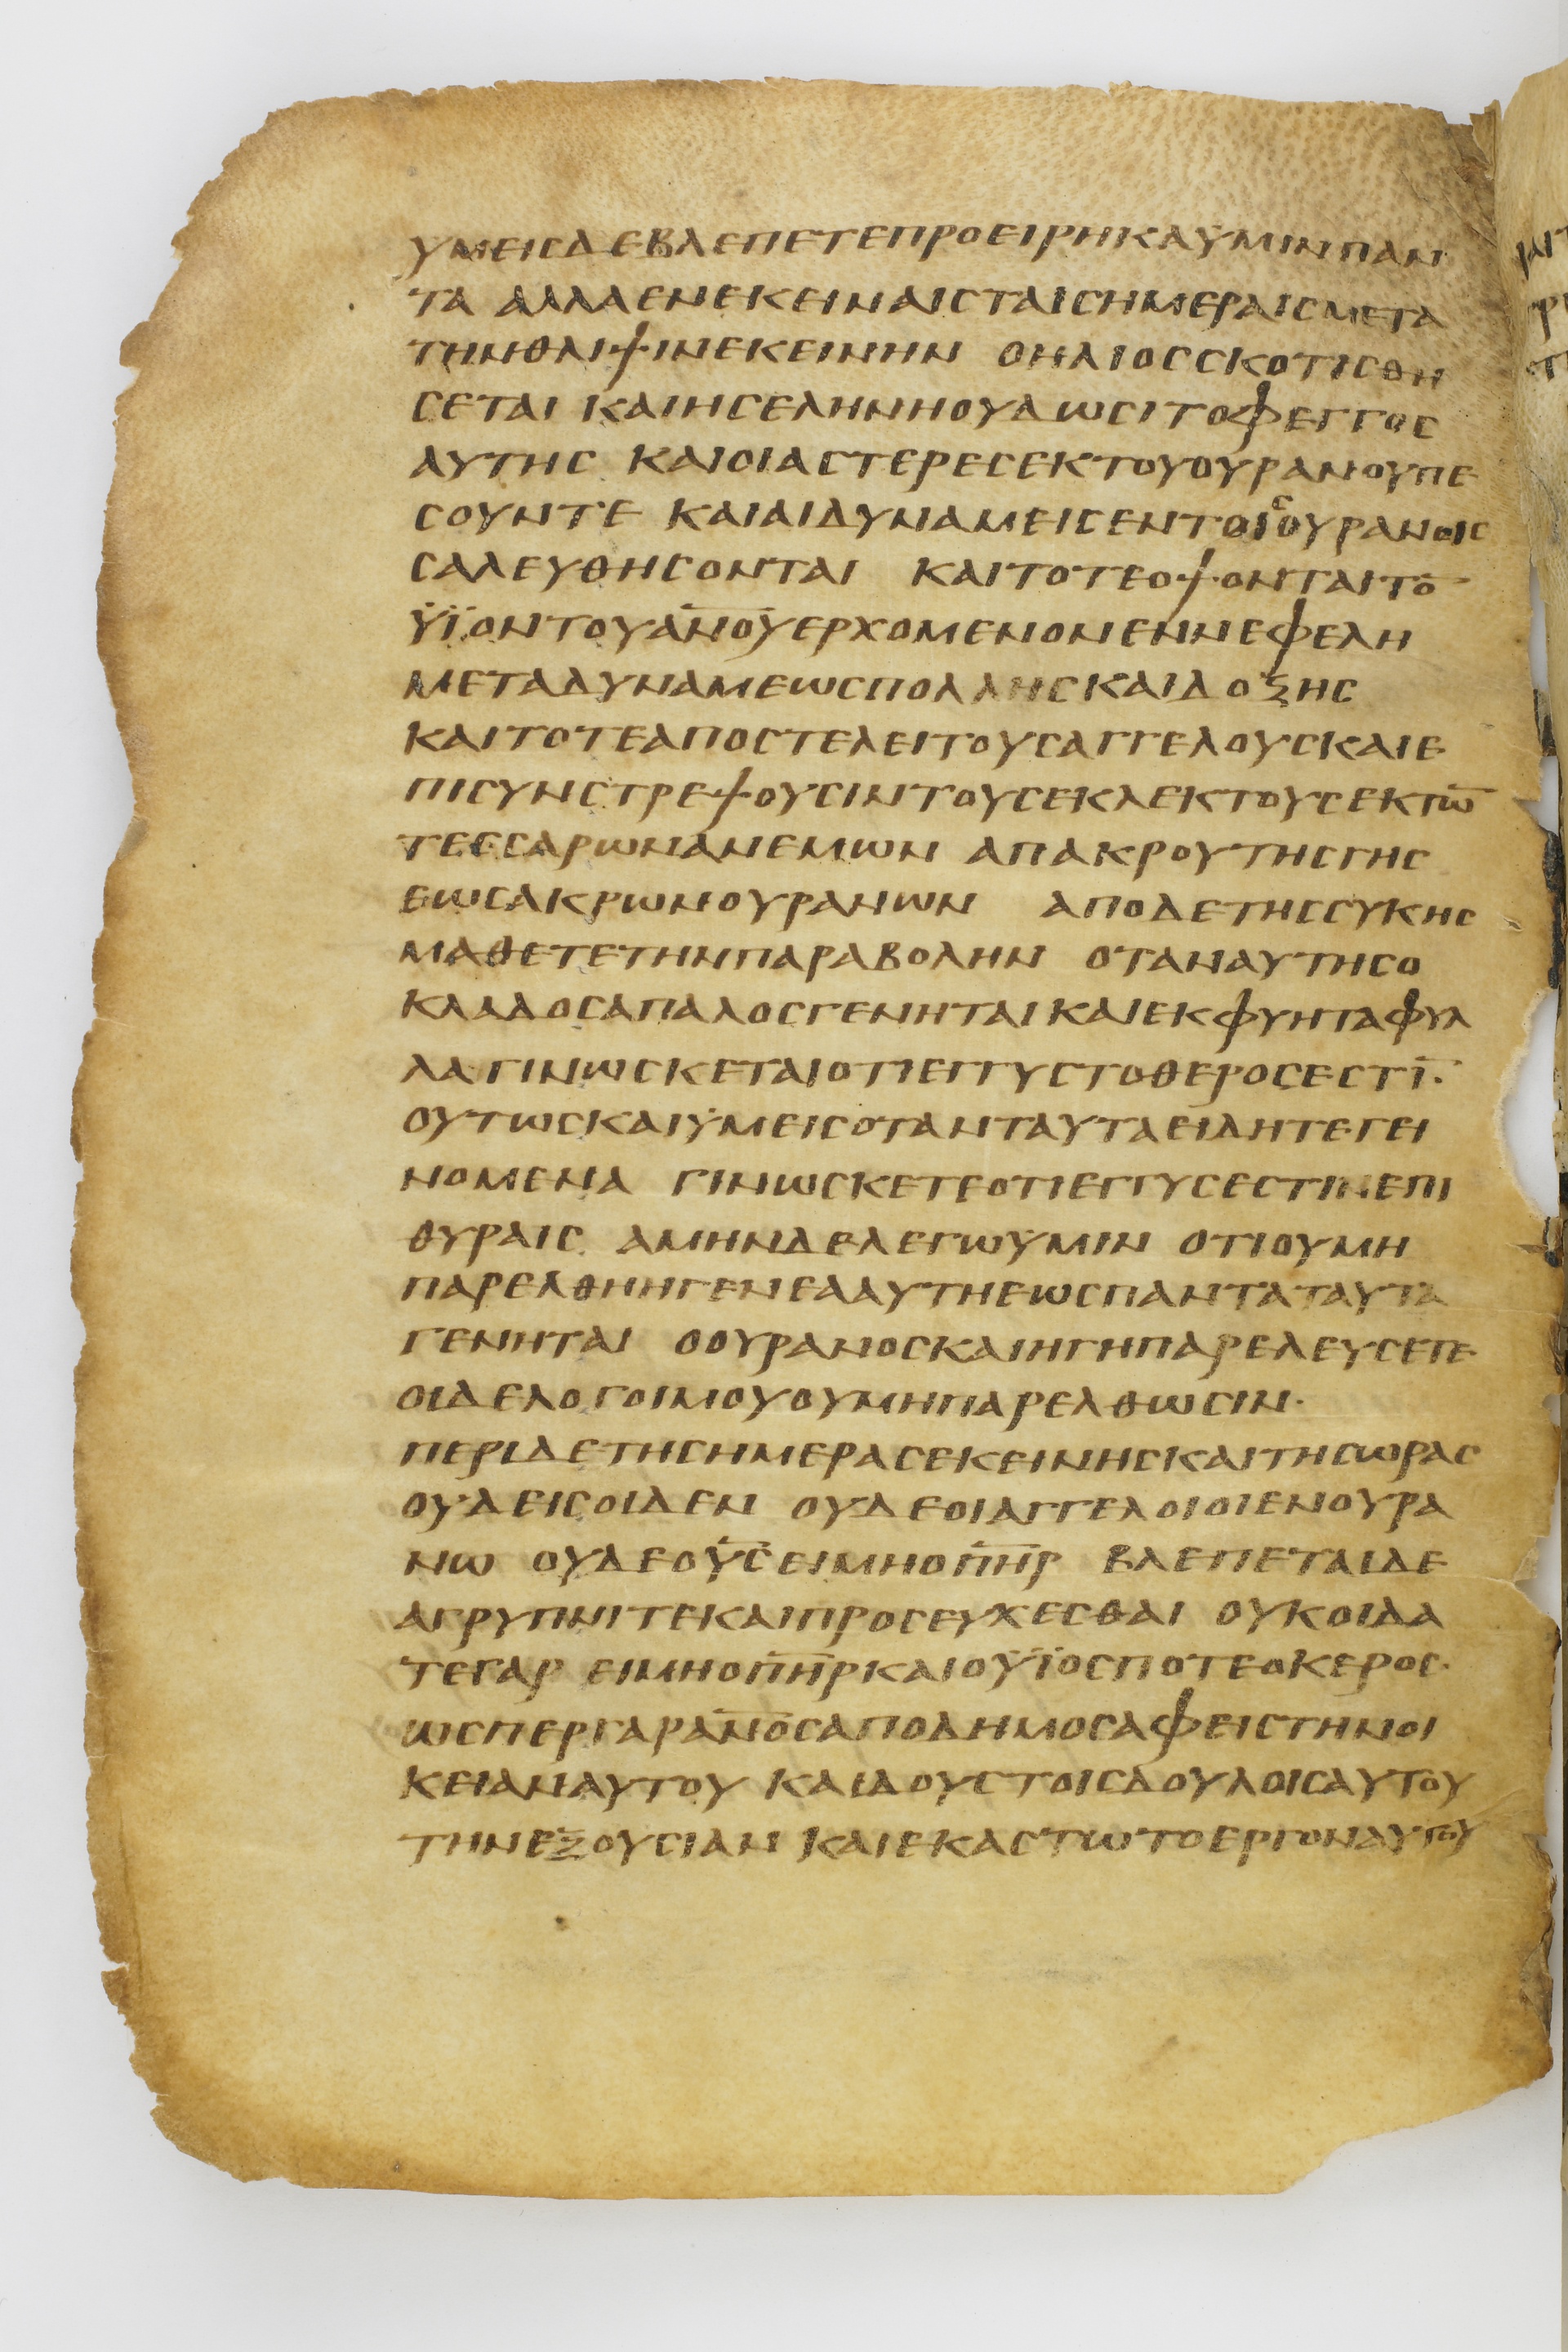 ΥΜΕΙCΔΕΒΛΕΠΕΤΕΠΡΟΕΙΡΗΚΑΫΜΙΝΠΑΝ
ΤΑ ΑΛΛΑΕΝΕΚΕΙΝΑΙCΤΑΙCΗΜΕΡΑΙCΜΕΤΑ
ΤΗΝΘΛΙΨΙΝΕΚΕΙΝΗΝ ΟΗΛΙΟCCΚΟΤΙCΘΗ
CΕΤΑΙ ΚΑΙΗCΕΛΗΝΗΟΥΔΩCΙΤΟΦΕΓΓΟC
ΑΥΤΗC ΚΑΙΟΙΑCΤΕΡΕCΕΚΤΟΥΟΥΡΑΝΟΥΠΕ
CΟΥΝΤΕ ΚΑΙΑΙΔΥΝΑΜΕΙCΕΝΤΟΙCΟΥΡΑΝΟΙC
CΑΛΕΥΘΗCΟΝΤΑΙ ΚΑΙΤΟΤΕΟΨΟΝΤΑΙΤΟ̅
ΫΪΟΝΤΟΥΑ̅Ν̅Ο̅Υ̅ΕΡΧΟΜΕΝΟΝΕΝΝΕΦΕΛΗ
ΜΕΤΑΔΥΝΑΜΕΩCΠΟΛΛΗCΚΑΙΔΟΞΗC
ΚΑΙΤΟΤΕΑΠΟCΤΕΛΕΙΤΟΥCΑΓΓΕΛΟΥCΚΑΙΕ
ΠΙCΥΝCΤΡΕΨΟΥCΙΝΤΟΥCΕΚΛΕΚΤΟΥCΕΚΤΩ̅
ΤΕCCΑΡΩΝΑΝΕΜΩΝ ΑΠΑΚΡΟΥΤΗCΓΗC
ΕΩCΑΚΡΩΝΟΥΡΑΝΩΝ ΑΠΟΔΕΤΗCCΥΚΗC
ΜΑΘΕΤΕΤΗΝΠΑΡΑΒΟΛΗΝ ΟΤΑΝΑΥΤΗCΟ
ΚΛΑΔΟCΑΠΑΛΟCΓΕΝΗΤΑΙΚΑΙΕΚΦΥΗΤΑΦΥΛ
ΛΑΓΙΝΩCΚΕΤΑΙΟΤΙΕΓΓΥCΤΟΘΕΡΟCΕCΤΙ̅·
ΟΥΤΩCΚΑΙΫΜΕΙCΟΤΑΝΤΑΥΤΑΕΙΔΗΤΕΓΕΙ
ΝΟΜΕΝΑ ΓΙΝΩCΚΕΤΕΟΤΙΕΓΓΥCΕCΤΙΝΕΠΙ
ΘΥΡΑΙC ΑΜΗΝΔΕΛΕΓΩΫΜΙΝ ΟΤΙΟΥΜΗ
ΠΑΡΕΛΘΗΗΓΕΝΕΑΑΥΤΗΕΩCΠΑΝΤΑΤΑΥΤΑ
ΓΕΝΗΤΑΙ ΟΟΥΡΑΝΟCΚΑΙΗΓΗΠΑΡΕΛΕΥCΕΤΕ
ΟΙΔΕΛΟΓΟΙΜΟΥΟΥΜΗΠΑΡΕΛΘΩCΙΝ·
ΠΕΡΙΔΕΤΗCΗΜΕΡΑCΕΚΕΙΝΗCΚΑΙΤΗCΩΡΑC
ΟΥΔΕΙCΟΙΔΕΝ ΟΥΔΕΟΙΑΓΓΕΛΟΙΟΙΕΝΟΥΡΑ
ΝΩ ΟΥΔΕΟΥ̅C̅ΕΙΜΗΟΠ̅Η̅Ρ̅ ΒΛΕΠΕΤΑΙΔΕ
ΑΓΡΥΠΝΙΤΕΚΑΙΠΡΟCΕΥΧΕCΘΑΙ ΟΥΚΟΙΔΑ
ΤΕΓΑΡ ΕΙΜΗΟΠ̅Η̅Ρ̅ΚΑΙΟΫΪΟCΠΟΤΕΟΚΕΡΟC·
ΩCΠΕΡΓΑΡΑ̅Ν̅Ο̅C̅ΑΠΟΔΗΜΟCΑΦΕΙCΤΗΝΟΙ
ΚΕΙΑΝΑΥΤΟΥ ΚΑΙΔΟΥCΤΟΙCΔΟΥΛΟΙCΑΥΤΟΥ
ΤΗΝΕΞΟΥCΙΑΝ ΚΑΙΕΚΑCΤΩΤΟΕΡΓΟΝΑΥΤΟΥ